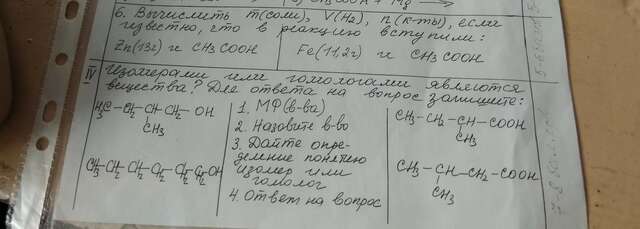 б. Вычислить m(соли), V(H₂), n(к-ты), если
известно, что в реакцию вступили:
Zn(13г) и CH₃COOH
Fe(11,2г) и CH₃COOH
IV Изомерами или гомологами являются
вещества? Для ответа на вопрос запишите:
H₃C-CH₂-CH-CH₂-OH
CH₃
CH₃-CH₂-CH₂-CH₂-CH₂-CH₂OH
1. МФ(в-ва)
2. Назовите в-во
3. Дайте опре-
деление понятию
изомер или
гомолог
4. Ответ на вопрос
CH₃-CH₂-CH-COOH
CH₃
CH₃-CH-CH₂-COOH
CH₃